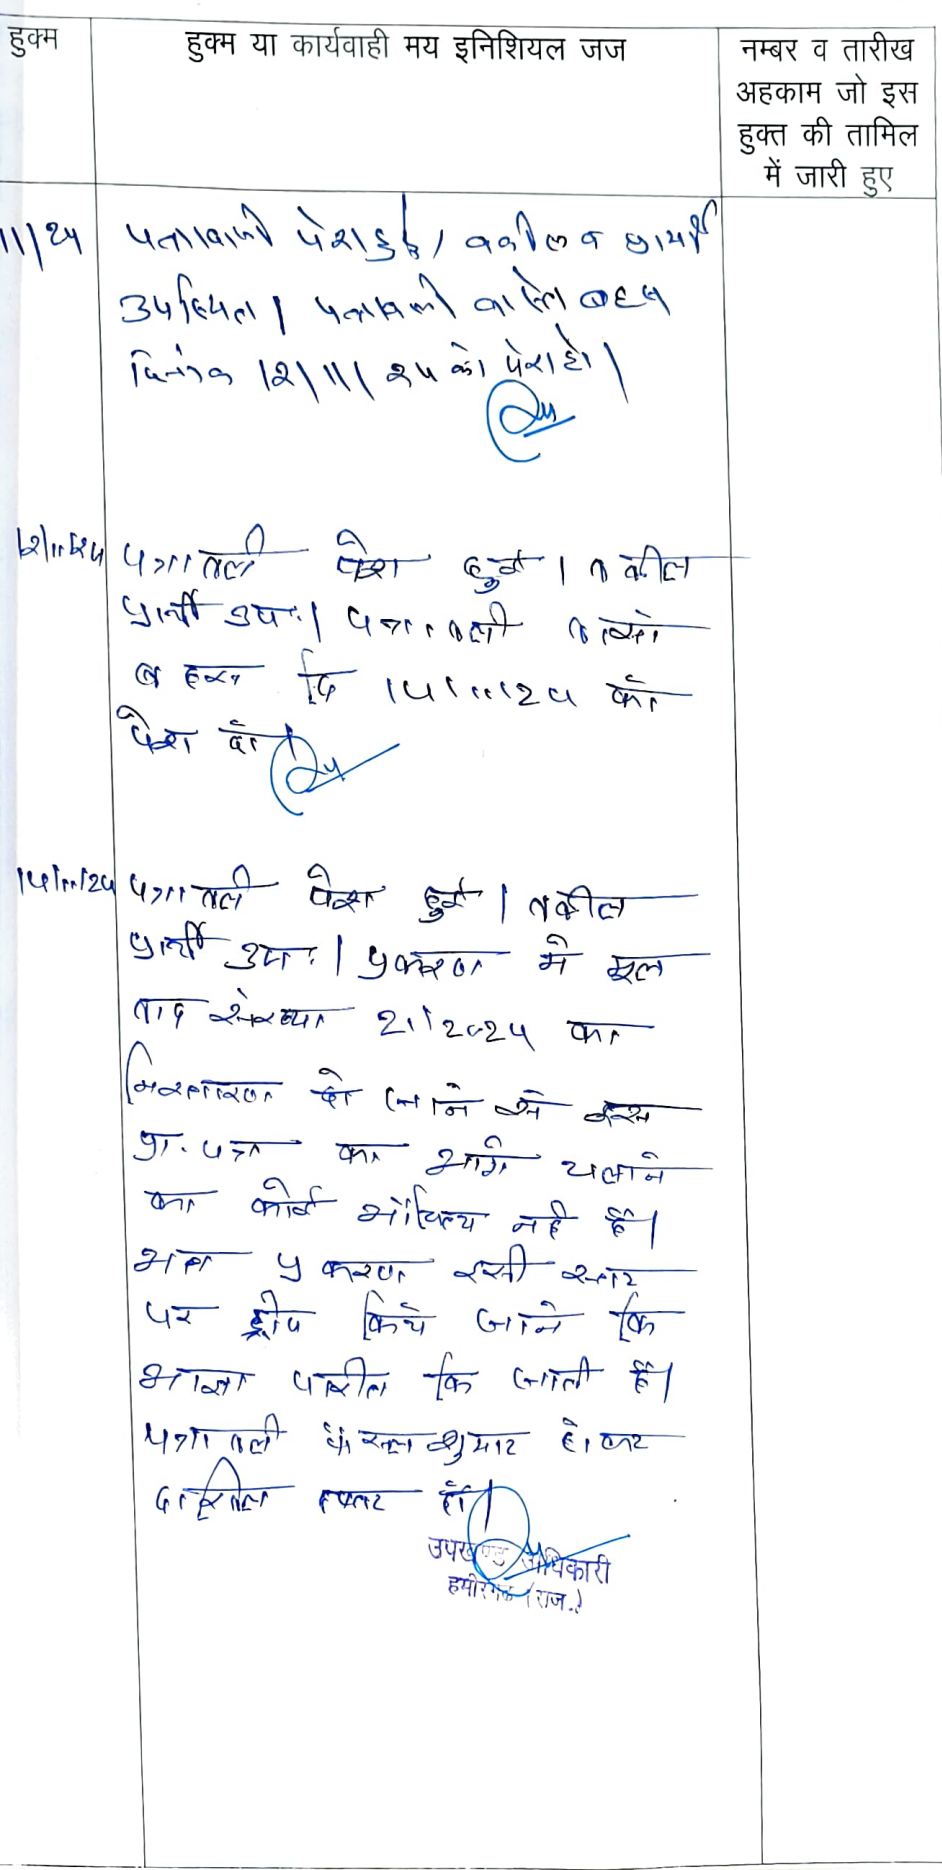 हुक्म
हुक्म या कार्यवाही मय इनिशियल जज
नम्बर व तारीख
अहकाम जो इस
हुक्त की तामिल
में जारी हुए
11/24 पत्रावली पेश हुई। वकील व प्रार्थी
उपस्थित। पत्रावली वास्ते बहस
दिनांक 12/11/24 को पेश हो।
12/11/24 पत्रावली पेश हुई। वकील
प्रार्थी उप.। पत्रावली वास्ते
बहस दि 14/11/24 को
पेश हो।
14/11/24 पत्रावली पेश हुई। वकील
प्रार्थी उप.। प्रकरण में मूल
वाद संख्या 21/2024 का
निस्तारण हो जाने से इस
प्रा. पत्र का आगे चलाने
का कोई औचित्य नही हैं।
अतः प्रकरण इसी स्तर
पर ड्रोप किये जाने कि
आज्ञा पारित कि जाती हैं।
पत्रावली फैसल शुमार होकर
दाखिल दफ्तर हो।
उपखण्ड अधिकारी
हमीरगढ़ (राज.)